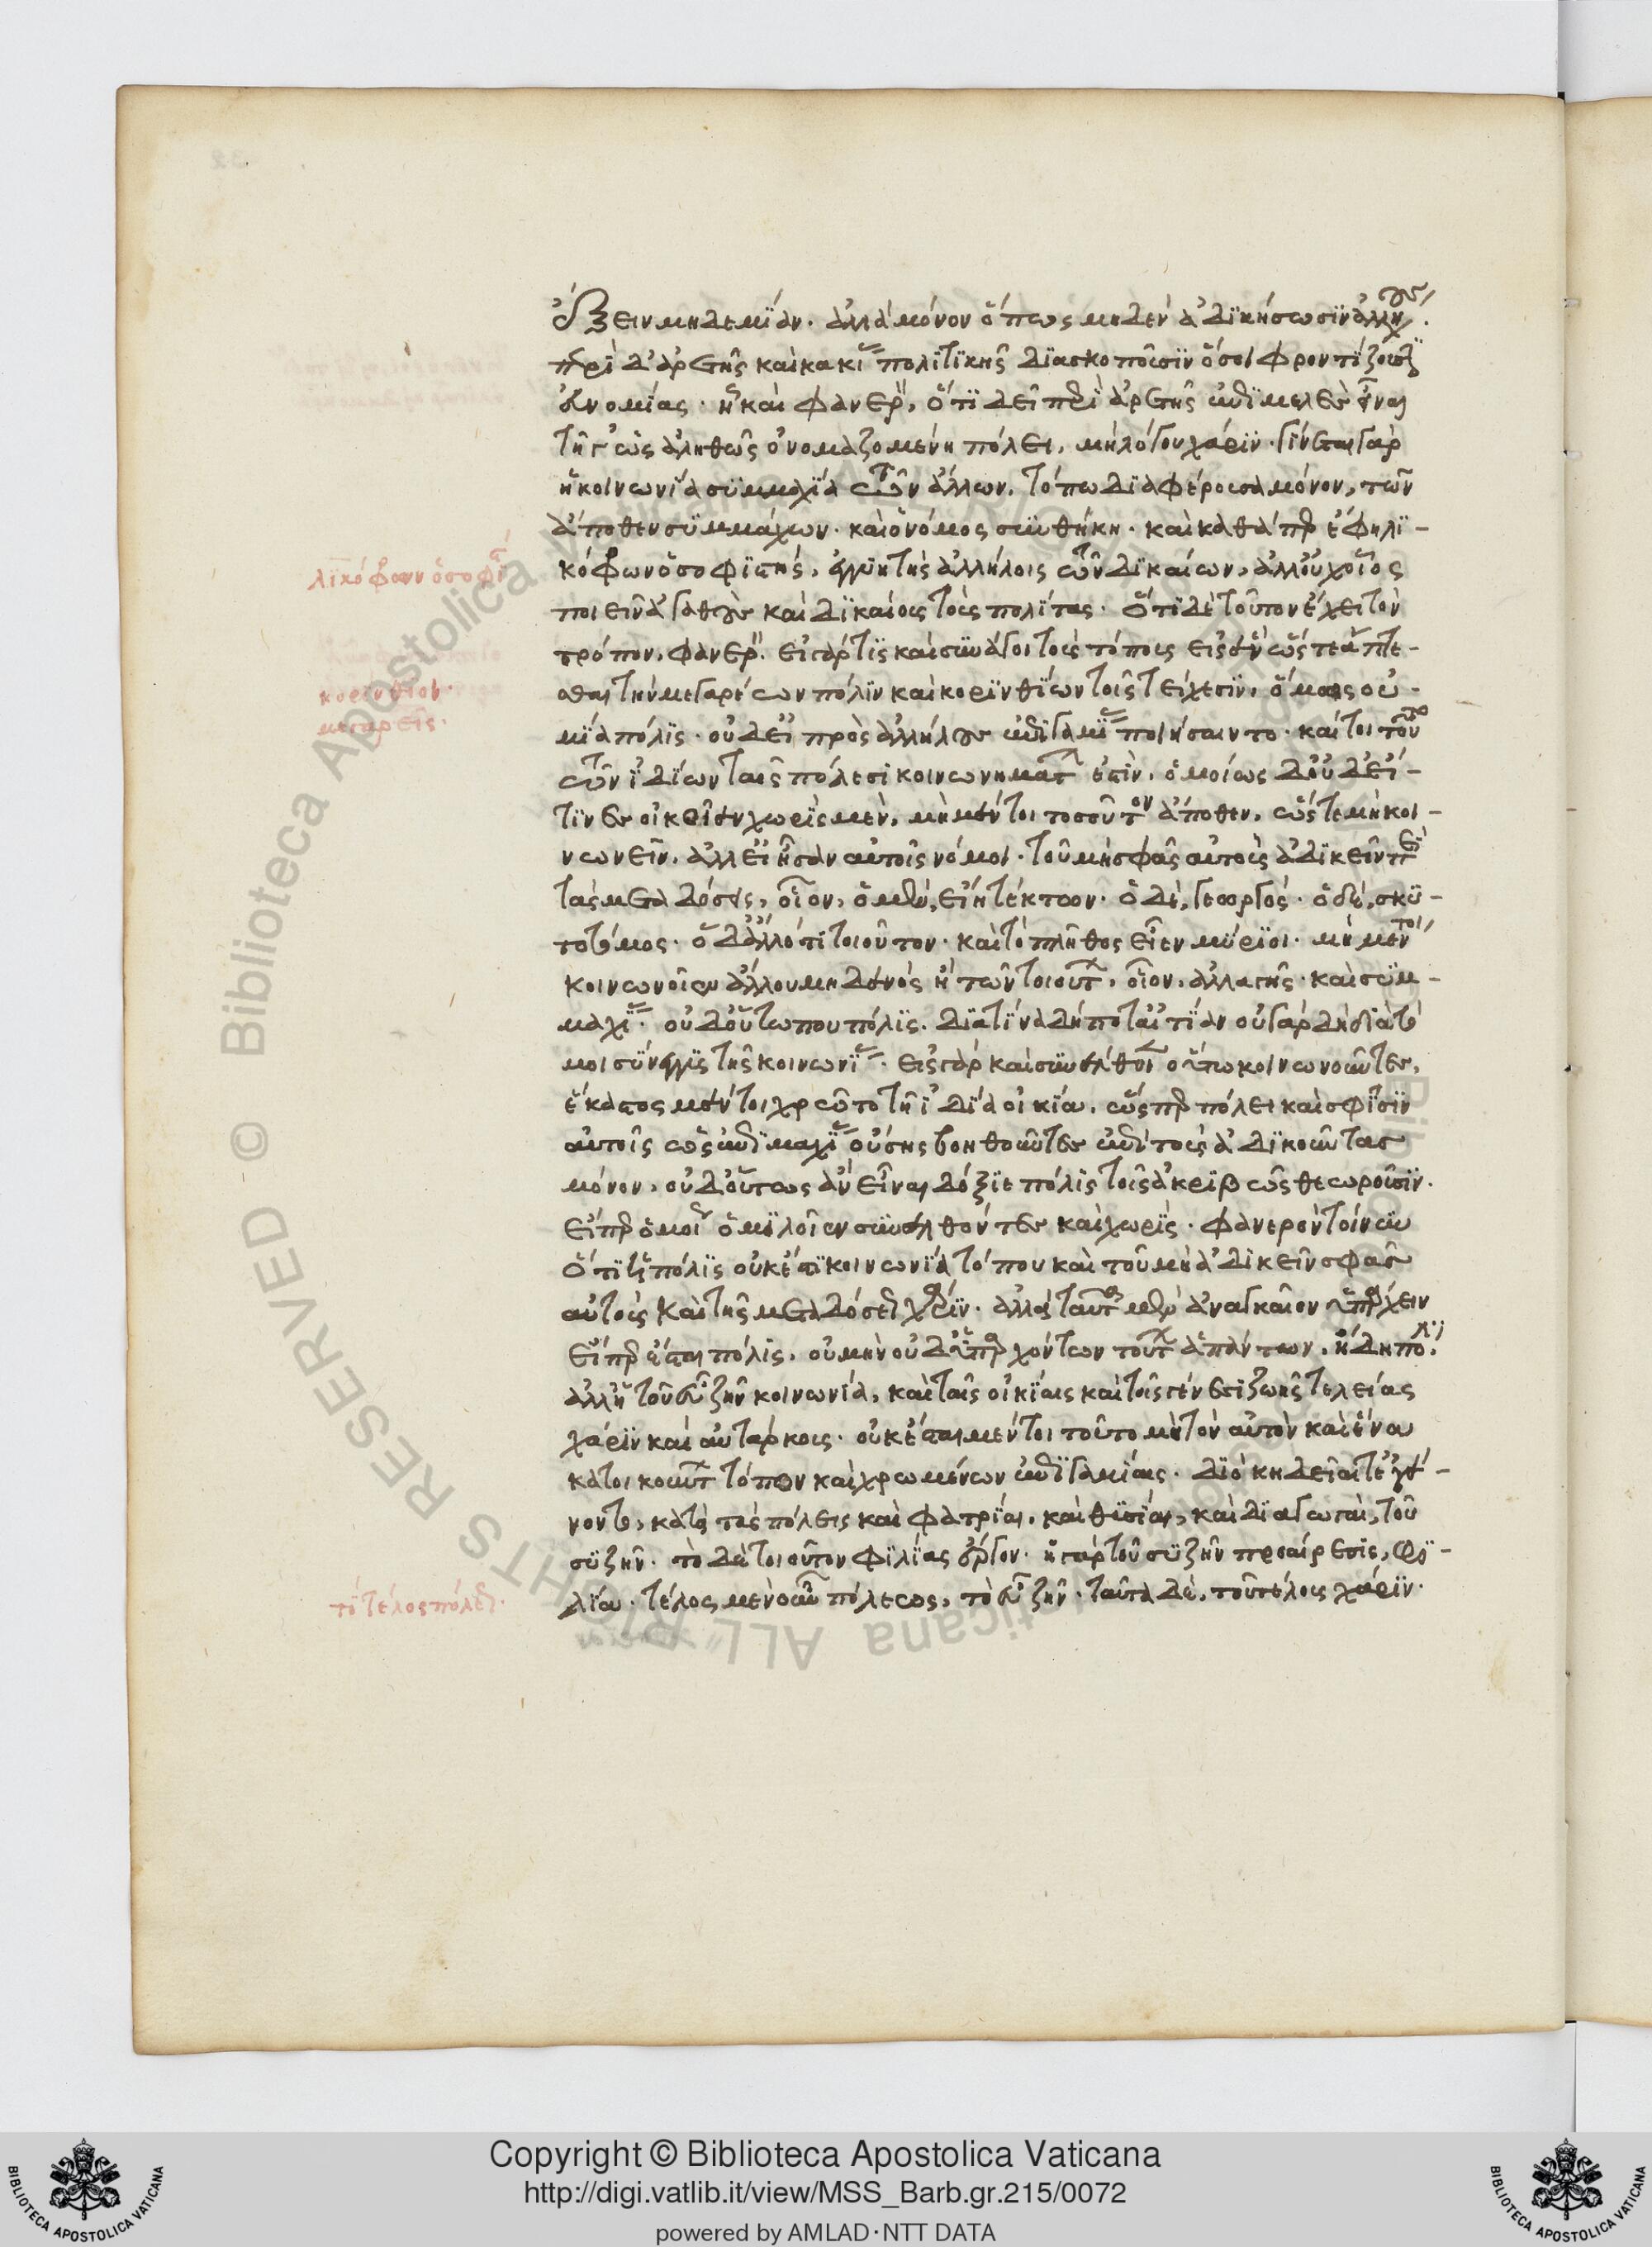 ἕξειν μηδεμίαν. ἀλλὰ μόνον ὅπως μηδὲν ἀδικήσωσιν ἀλλήλους.
περὶ δ' ἀρετῆς καὶ κακίας πολιτικῆς διασκοποῦσιν ὅσοι φροντίζουσιν
εὐνομίας. ἧ καὶ φανερὸν, ὅτι δεῖ περὶ ἀρετῆς ἐπιμελὲς εἶναι
τῆ γ' ὡς ἀληθῶς ὀνομαζομένη πόλει, μὴ λόγου χάριν. γίνεται γὰρ
ἡ κοινωνία συμμαχία τῶν ἄλλων, τόπω διαφέρουσα μόνον, τῶν
ἄποθεν συμμάχων. καὶ ὁ νόμος συνθήκη. καὶ καθάπερ ἔφη λϊ-
λϊκόφρων ὁ σοφι
κόφρων ὁ σοφιστής, ἐγγυητὴς ἀλλήλοις τῶν δικαίων, ἀλλ' οὐχ οἷος
ποιεῖν ἀγαθοὺς καὶ δικαίους τοὺς πολίτας. ὅτι δὲ τοῦτον ἔχει τὸν
τρόπον, φανερόν. εἰ γάρ τις καὶ συνάγοι τοὺς τόπους εἰς ἓν ὥστε ἅπτε-
κορίνθιοι.
σθαι τὴν μεγαρέων πόλιν καὶ κορινθίων τοῖς τείχεσιν, ὅμως οὐ
μεγαρεῖς.
μία πόλις. οὐδ' εἰ πρὸς ἀλλήλους ἐπιγαμίας ποιήσαιντο. καίτοι τοῦτο
τῶν ἰδίων ταῖς πόλεσι κοινωνημάτων ἐστὶν. ὁμοίως δ' οὐδ' εἴ-
τινες οἰκοῖεν χωρὶς μὲν, μὴ μέντοι τοσοῦτον ἄποθεν, ὥστε μὴ κοι-
νωνεῖν. ἀλλ' εἴησαν αὐτοῖς νόμοι. τοῦ μὴ σφᾶς αὐτοὺς ἀδικεῖν περὶ
τὰς μεταδόσεις, οἷον, ὁ μὲν, εἴη τέκτων. ὁ δὲ, γεωργός. ὁ δὲ, σκυ-
τοτόμος. ὁ δ' ἄλλό τι τοιοῦτον. καὶ τὸ πλῆθος εἶεν μύριοι. μὴ μέντοι
κοινωνοῖεν ἄλλου μηδενὸς ἢ τῶν τοιούτων, οἷον, ἀλλαγῆς. καὶ συμ-
μαχίας. οὐδ' οὕτω που πόλις. διὰ τίνα δή ποτ' αἰτίαν οὐ γὰρ δὴ διὰ τὸ
μὴ σύνεγγυς τῆς κοινωνίας. εἰ γὰρ καὶ συνέλθοιεν οὕτω κοινωνοῦντες,
ἕκαστος μέντοι χρῶτο τῆ ἰδία οἰκία, ὥσπερ πόλει καὶ σφίσιν
αὐτοῖς ὡς ἐπιμαχίας οὔσης βοηθοῦντες ἐπὶ τοὺς ἀδικοῦντας
μόνον, οὐδ' οὕτως ἂν εἶναι δόξειε πόλις τοῖς ἀκριβῶς θεωροῦσιν.
εἴπερ ὁμοίως ὁμιλοῖεν συνελθόντες καὶ χωρίς. φανερὸν τοίνυν
ὅτι ἡ πόλις οὐκ ἔστι κοινωνία τόπου καὶ τοῦ μὴ ἀδικεῖν σφᾶς
αὐτοὺς καὶ τῆς μεταδόσεως χάριν. ἀλλὰ ταῦτα μὲν ἀναγκαῖον ὑπάρχειν
εἴπερ ἔσται πόλις. οὐ μὴν οὐδ' ὑπαρχόντων τούτων ἁπάντων, ἤδη πόλις.
ἀλλ' ἡ τοῦ εὖ ζῆν κοινωνία, καὶ ταῖς οἰκίαις καὶ τοῖς γένεσι ζωῆς τελείας
χάριν καὶ αὐτάρκους. οὐκ ἔσται μέντοι τοῦτο μὴ τὸν αὐτὸν καὶ ἕνα
κατοικούντων τόπον καὶ χρωμένων ἐπιγαμίαις. διὸ κηδεῖαί τ' ἐγέ-
νοντο, κατὰ τὰς πόλεις καὶ φατρίαι, καὶ θυσίαι, καὶ διαγωγαὶ, τοῦ
συζῆν. τὸ δὲ τοιοῦτον φιλίας ἔργον. ἡ γὰρ τοῦ συζῆν προαίρεσις, φι-
τὸ τέλος πόλεως.
λία. τέλος μὲν οὖν πόλεως, τὸ εὖ ζῆν. ταῦτα δὲ, τοῦ τέλους χάριν.
Copyright © Biblioteca Apostolica Vaticana
http://digi.vatlib.it/view/MSS_Barb.gr.215/0072
powered by AMLAD·NTT DATA